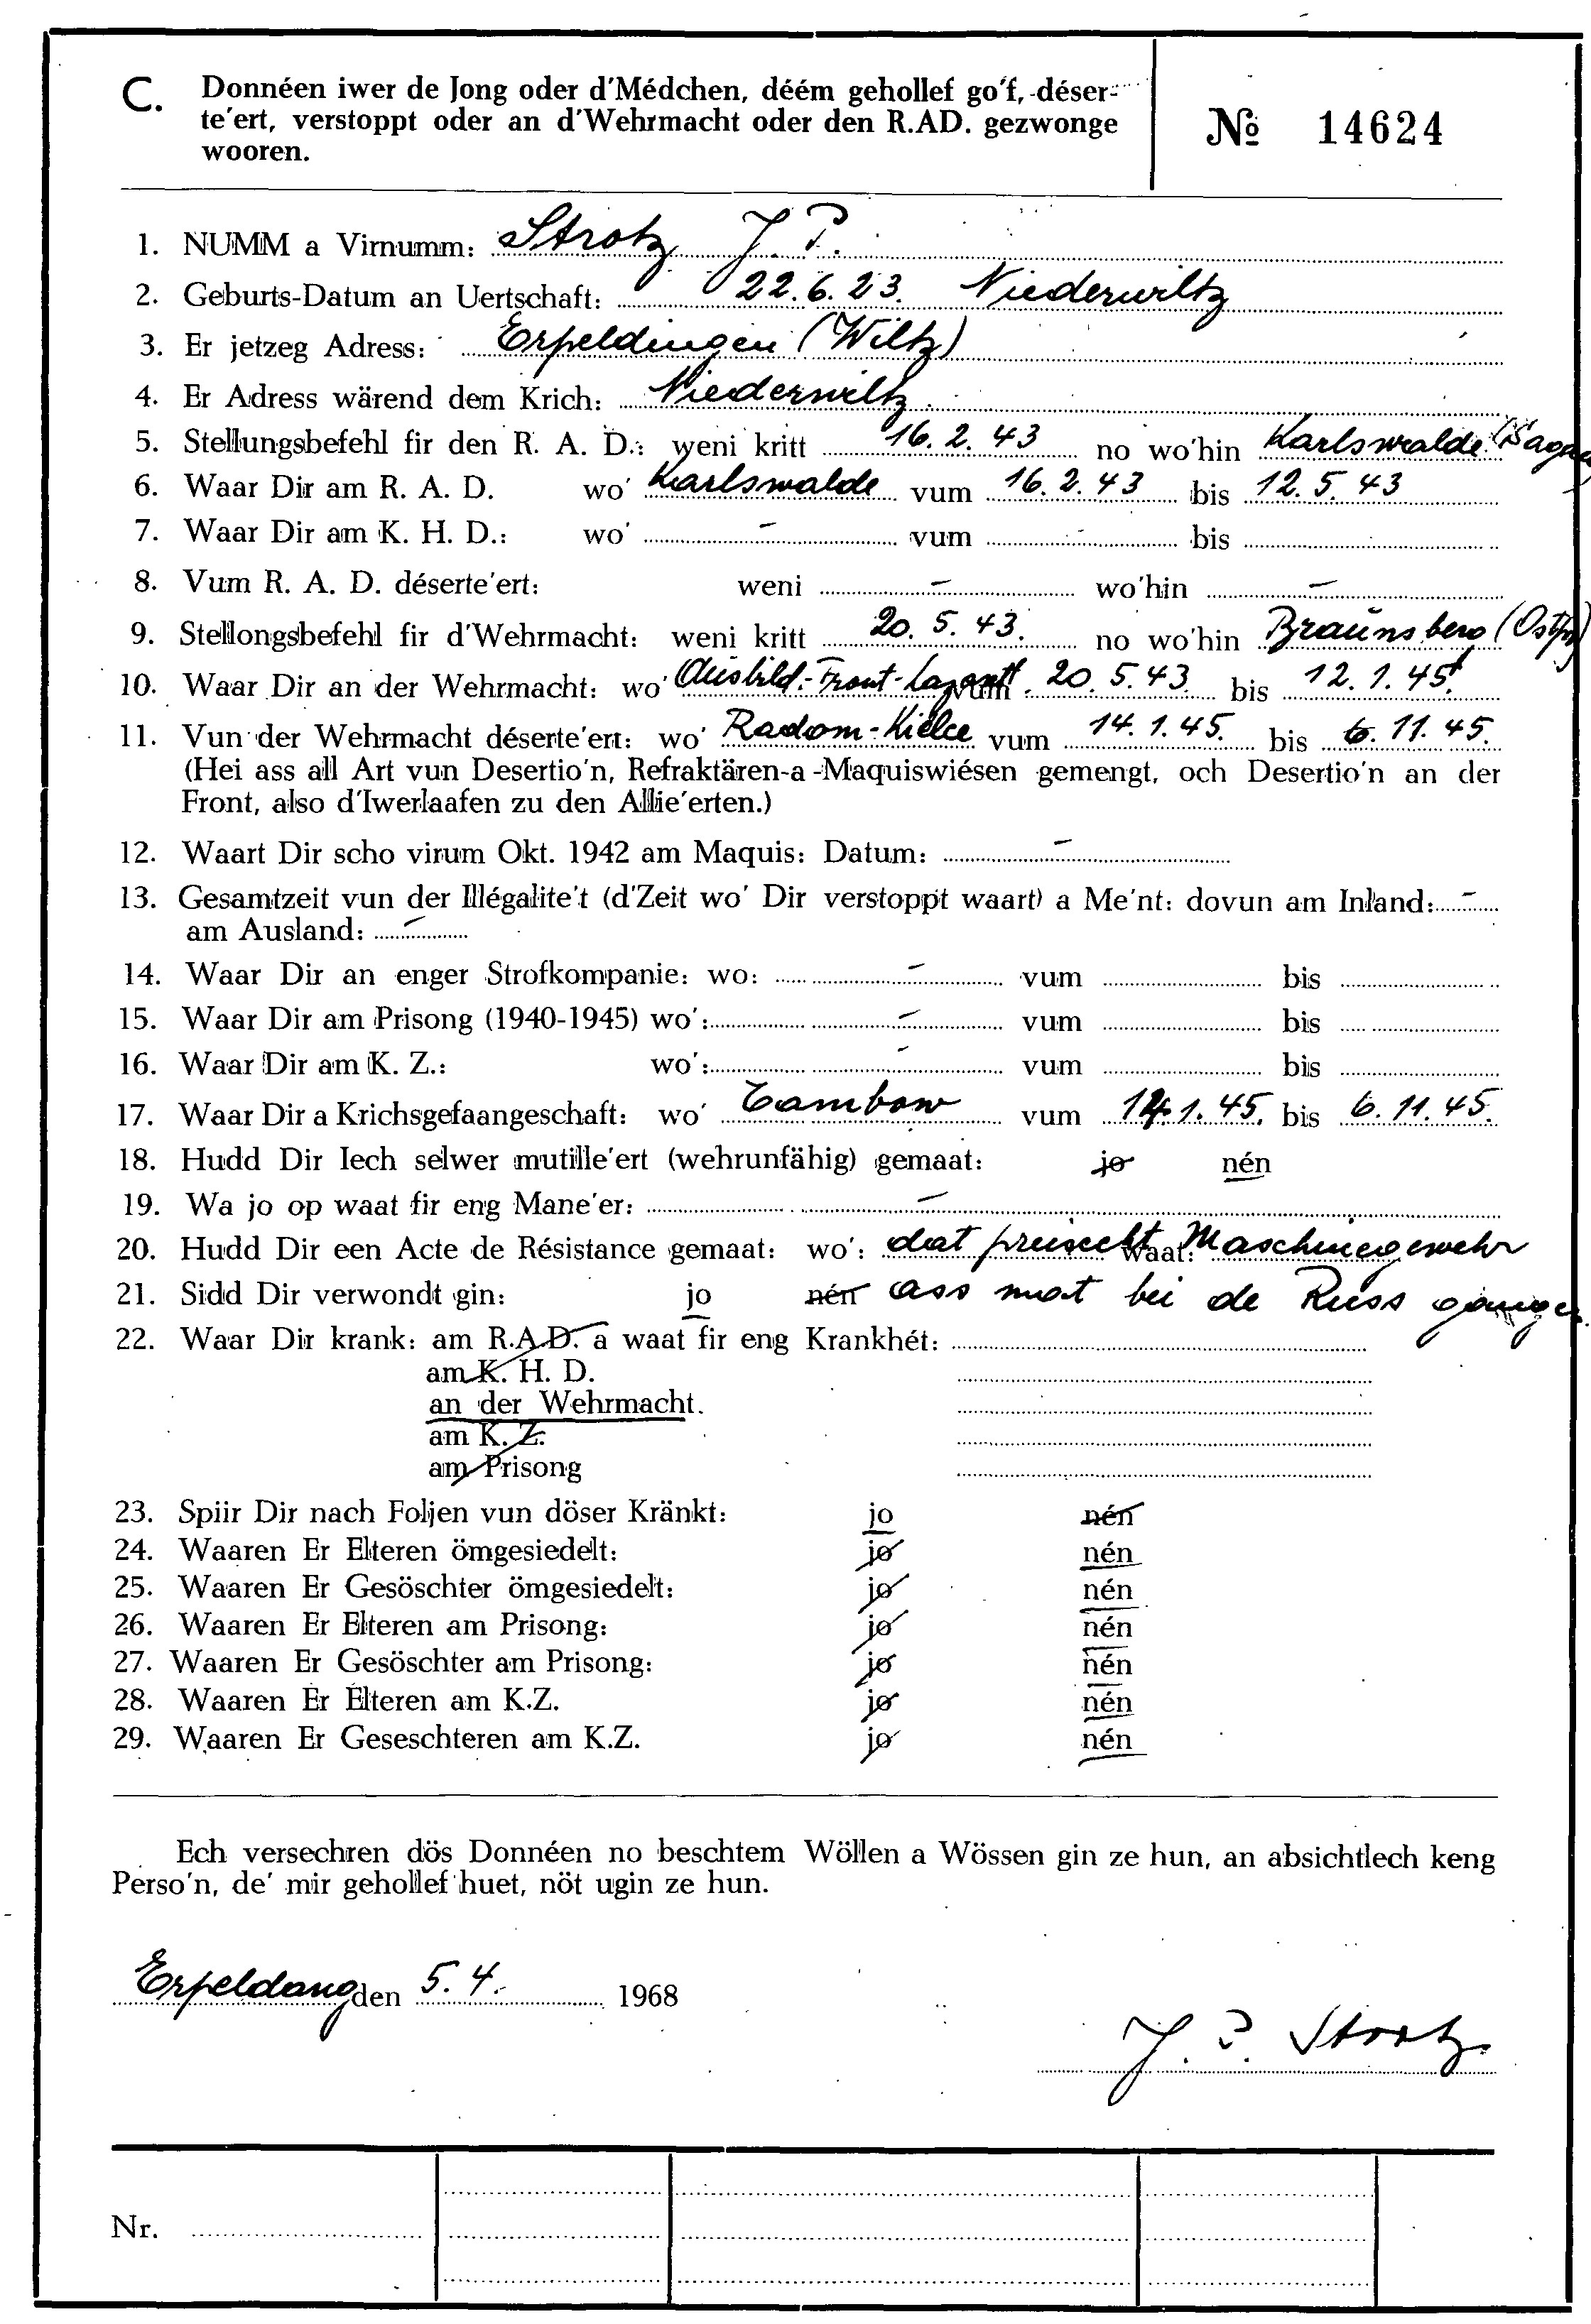 C. Donnéen iwer de Jong oder d'Médchen, déém gehollef go'f, déser-
te'ert, verstoppt oder an d'Wehrmacht oder den R.AD. gezwonge
wooren.
№ 14624
1. NUMM a Virnumm: Strotz J. P.
2. Geburts-Datum an Uertschaft: 22.6.23. Niederwiltz
3. Er jetzeg Adress: Erpeldingen (Wiltz)
4. Er Adress wärend dem Krich: Niederwiltz
5. Stellungsbefehl fir den R. A. D.: weni kritt 16.2.43 no wo'hin Karlswalde (Sagan
6. Waar Dir am R. A. D. wo' Karlswalde vum 16.2.43 bis 12.5.43
7. Waar Dir am K. H. D.: wo' - vum - bis
8. Vum R. A. D. déserte'ert: weni - wo'hin -
9. Stellongsbefehl fir d'Wehrmacht: weni kritt 20.5.43. no wo'hin Braunsberg (Ostpr)
10. Waar Dir an der Wehrmacht: wo' Ausbild.-Front-Lazarett vum 20.5.43 bis 12.1.45
11. Vun der Wehrmacht déserte'ert: wo' Radom-Kielce vum 14.1.45. bis 6.11.45.
(Hei ass all Art vun Desertio'n, Refraktären-a-Maquiswiésen gemengt, och Desertio'n an der
Front, also d'Iwerlaafen zu den Allie'erten.)
12. Waart Dir scho virum Okt. 1942 am Maquis: Datum: -
13. Gesamtzeit vun der Illégalite't (d'Zeit wo' Dir verstoppt waart) a Me'nt: dovun am Inland: -
am Ausland: -
14. Waar Dir an enger Strofkompanie: wo: - vum bis
15. Waar Dir am Prisong (1940-1945) wo': - vum bis
16. Waar Dir am K. Z.: wo': - vum bis
17. Waar Dir a Krichsgefaangeschaft: wo' Tambow vum 14.1.45. bis 6.11.45.
18. Hudd Dir Iech selwer mutille'ert (wehrunfähig) gemaat: jo nén
19. Wa jo op waat fir eng Mane'er: -
20. Hudd Dir een Acte de Résistance gemaat: wo': dat preisecht waat: Maschinegewehr
21. Sidd Dir verwondt gin: jo nén ass mat bei de Russ gaangen
22. Waar Dir krank: am R.A.D. a waat fir eng Krankhét:
am K. H. D.
an der Wehrmacht.
am K. Z.
am Prisong
23. Spiir Dir nach Foljen vun döser Kränkt: jo nén
24. Waaren Er Elteren ömgesiedelt: jo nén
25. Waaren Er Gesöschter ömgesiedelt: jo nén
26. Waaren Er Elteren am Prisong: jo nén
27. Waaren Er Gesöschter am Prisong: jo nén
28. Waaren Er Elteren am K.Z. jo nén
29. Waaren Er Geseschteren am K.Z. jo nén
Ech versechren dös Donnéen no beschtem Wöllen a Wössen gin ze hun, an absichtlech keng
Perso'n, de' mir gehollef huet, nöt ugin ze hun.
Erpeldang den 5.4. 1968
J. P. Strotz
Nr.